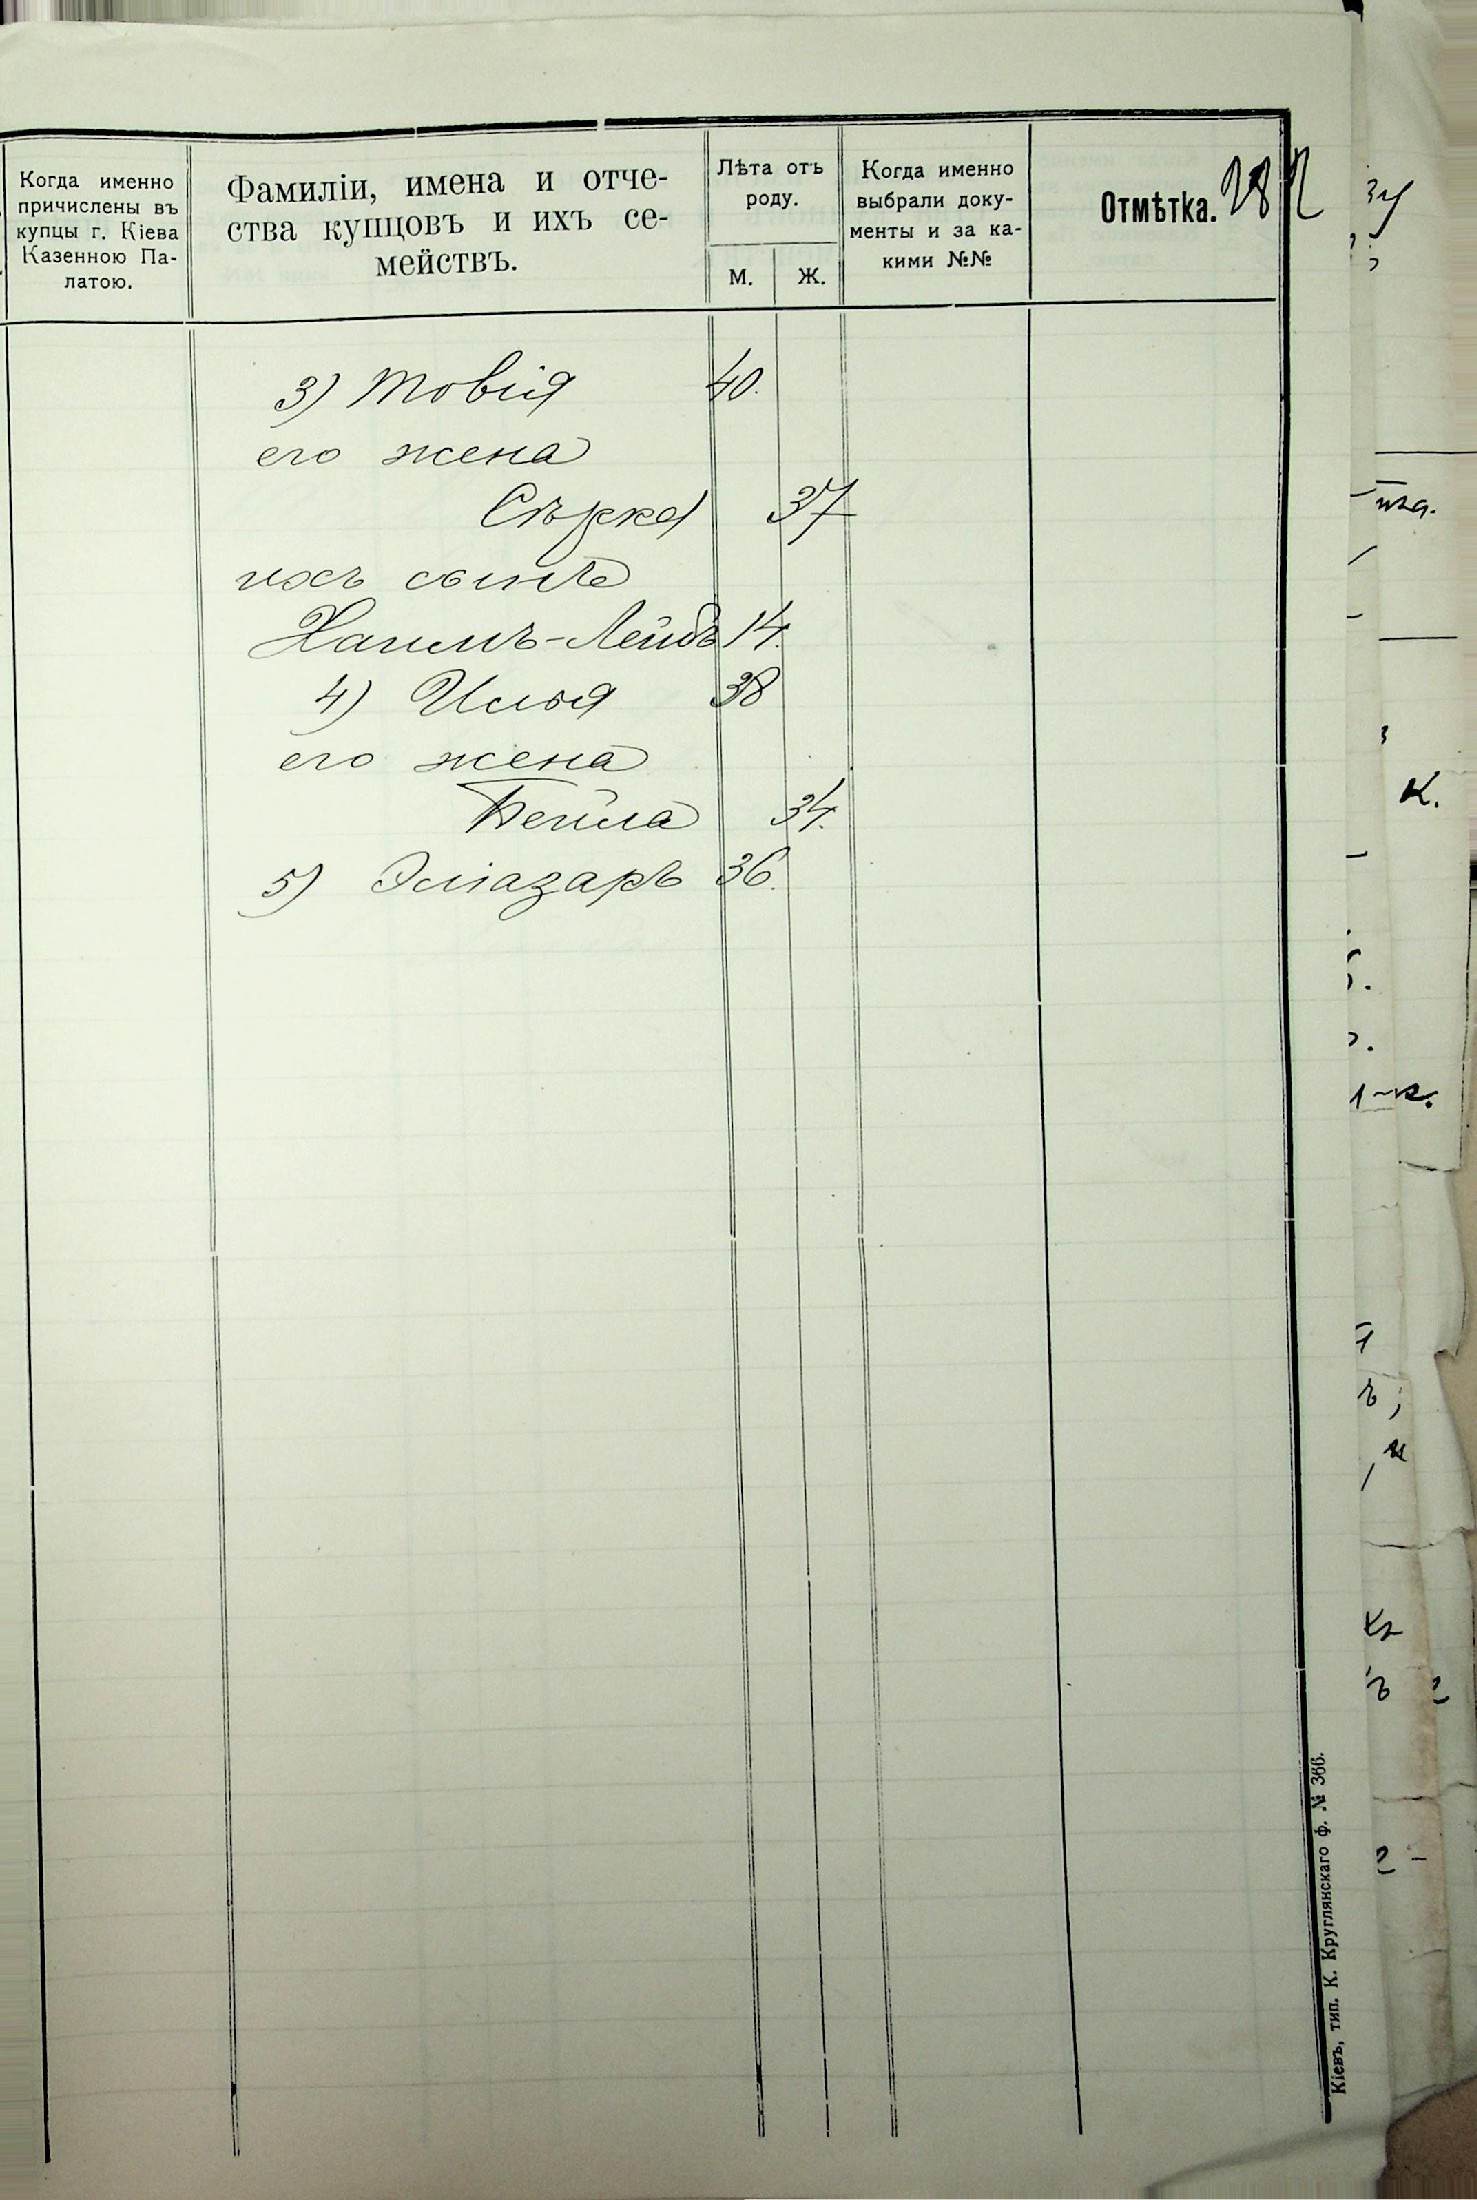 Когда именно
причислены въ
купцы г. Кіева
Казенною Па-
латою.
Фамиліи, имена и отче-
ства купцовъ и ихъ се-
мействъ.
Лѣта отъ
роду.
М. Ж.
Когда именно
выбрали доку-
менты и за ка-
кими №№
Отмѣтка.
3) Товія 40.
его жена
37
ихъ сынъ
Хаимъ-Лейбъ 14.
4) Илья 38
его жена
Бейла 34.
5) Эліазаръ 36.
Кіевъ, тип. К. Круглянскаго ф. № 366.